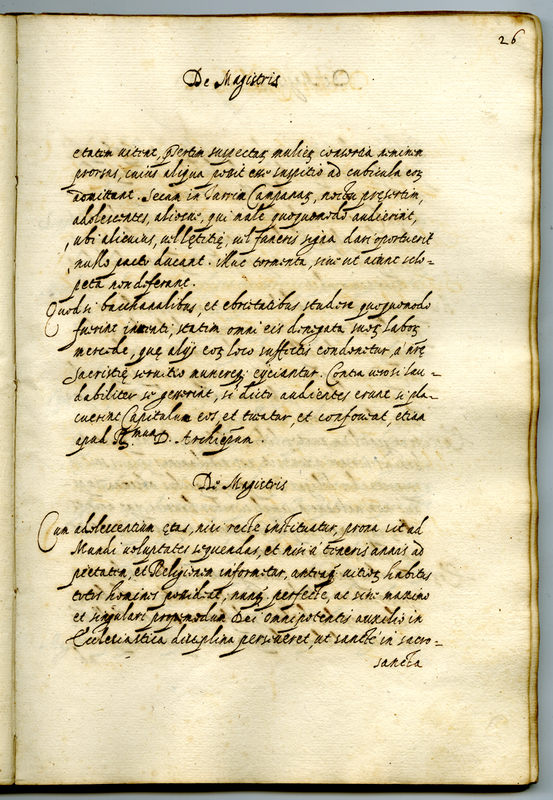 26
De Magistris
etatem uitent, p̱sertim suspectaꝝ mulieꝝ consortia neminem
prorsus, cuius aliqua possit esse suspitio ad cubicula eoꝝ
admittant. Secum in Turrim Campanaꝝ, noctu presertim,
adolescentes, aliosue, qui male quoquomodo audierint,
ubi alicuius, uel lętitię, uel funeris signa dari oportuerit
nullo pacto ducant. illuc tormenta, siue ut aiunt sclo-
peta non deferant.
Quod si bacchanalibus, et ebrietatibus studere quoquomodo
fuerint inuenti; statim omni eis denegata suoꝝ laboꝝ
mercede, quę alijs eoꝝ loco suffectis condonetur, à nr̃ę
Sacristię seruitio munereq; eijciantur. Contra uero si lau-
dabiliter se gesserint, si dicto audientes erunt si pla-
cuerint Capitulum eos, et tueatur, et confoueat, etiam
apud Illmum D. Archiep̃um.
De Magistris
Cum adolescentium ętas, nisi recte instituatur, prona sit ad
Mundi uoluptates sequendas, et nisi à teneris annis ad
pietatem, et Religionem informetur, antequaꝫ uitioꝝ habitus
totos homines possideat, nunq̃ perfecte, ac sine maximo
et singulari propemodum Dei omnipotentis auxilio in
Ecclesiastica disciplina perseueret, ut sancte in sacro-
sancta